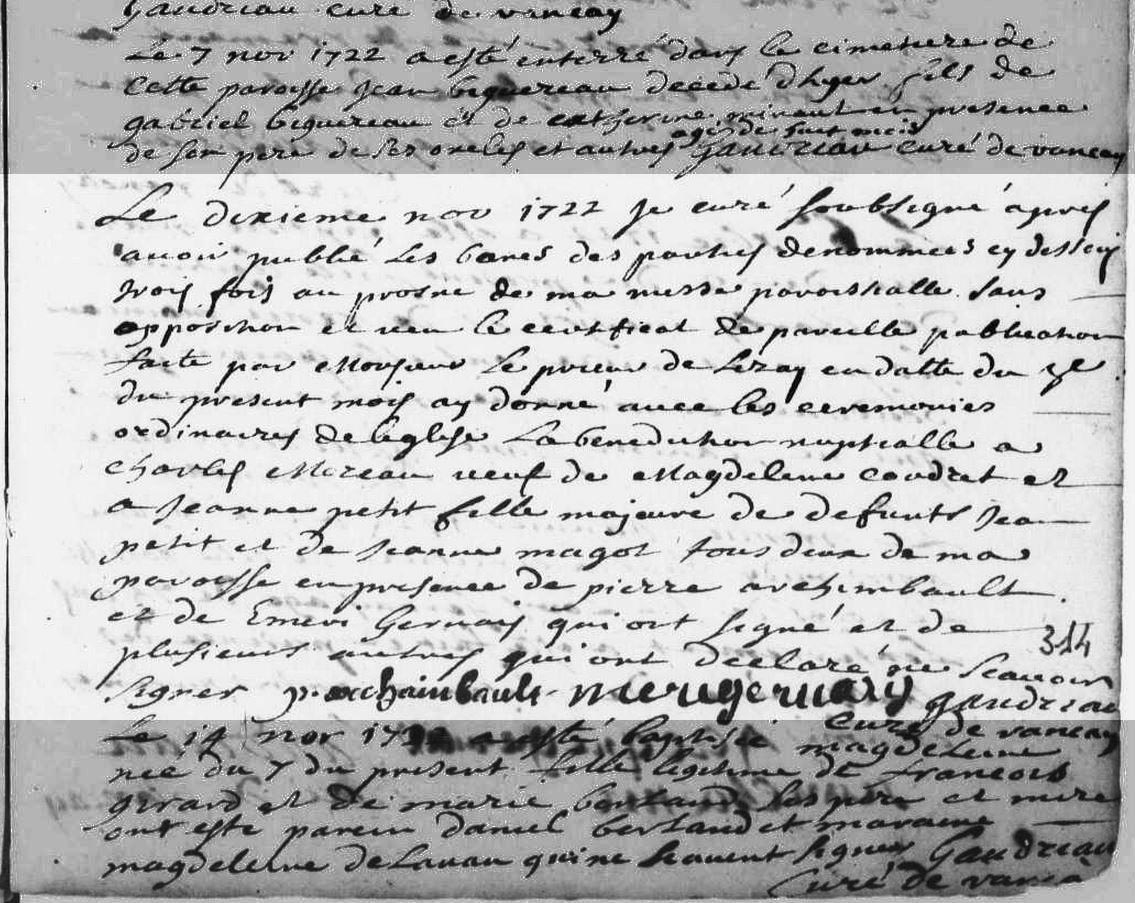 Gaudriau curé de vançay
Le 7 nov 1722 a esté enterré dans le cimetiere de
cette paroisse jean biguereau decedé d'hyer fils de
gabriel biguereau et de catherine minault en presence
agé de huit mois
de son pere de ses oncles et autres Gaudriau curé de vançay
Le dixieme nov 1722 je curé soubsigné apres
avoir publié les bancs des parties denommees cy dessous
trois fois au prosne de ma messe paroissialle sans
opposition et veu le certificat de pareille publication
faite par Monsieur Le prieur de Lezay en datte du
du present mois ay donné avec les ceremonies
ordinaires de leglise La benediction nuptialle a
charles Moreau veuf de Magdelene coudret et
a Jeanne petit fille majeure de defunts Jean
petit et de Jeanne magot tous deux de ma
paroisse en presence de pierre archimbault
et de Emeri Gervais qui ont signé et de
plusieurs autres qui ont declaré ne scavoir 314
signer p. archainbault merygervais Gaudriau
curé de vançay
Le 14 nov 1722 a esté baptisée magdeleine
née du 7 du present fille legitime de francois
girard et de marie berland ses pere et mere
ont esté parein daniel berland et maraine
magdeleine de Lavau qui ne scavent signer Gaudriau
curé de vança